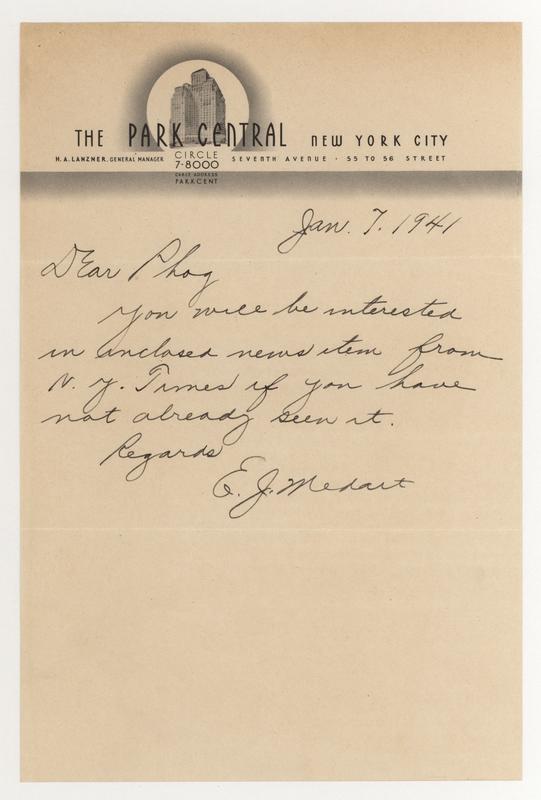 THE PARK CENTRAL NEW YORK CITY
H. A. LANZNER, GENERAL MANAGER CIRCLE 7-8000 SEVENTH AVENUE · 55 TO 56 STREET
CABLE ADDRESS
PARKCENT
Jan. 7. 1941
Dear Phog
You will be interested
in inclosed news item from
N. Y. Times if you have
not already seen it.
Regards
E. J. Medart